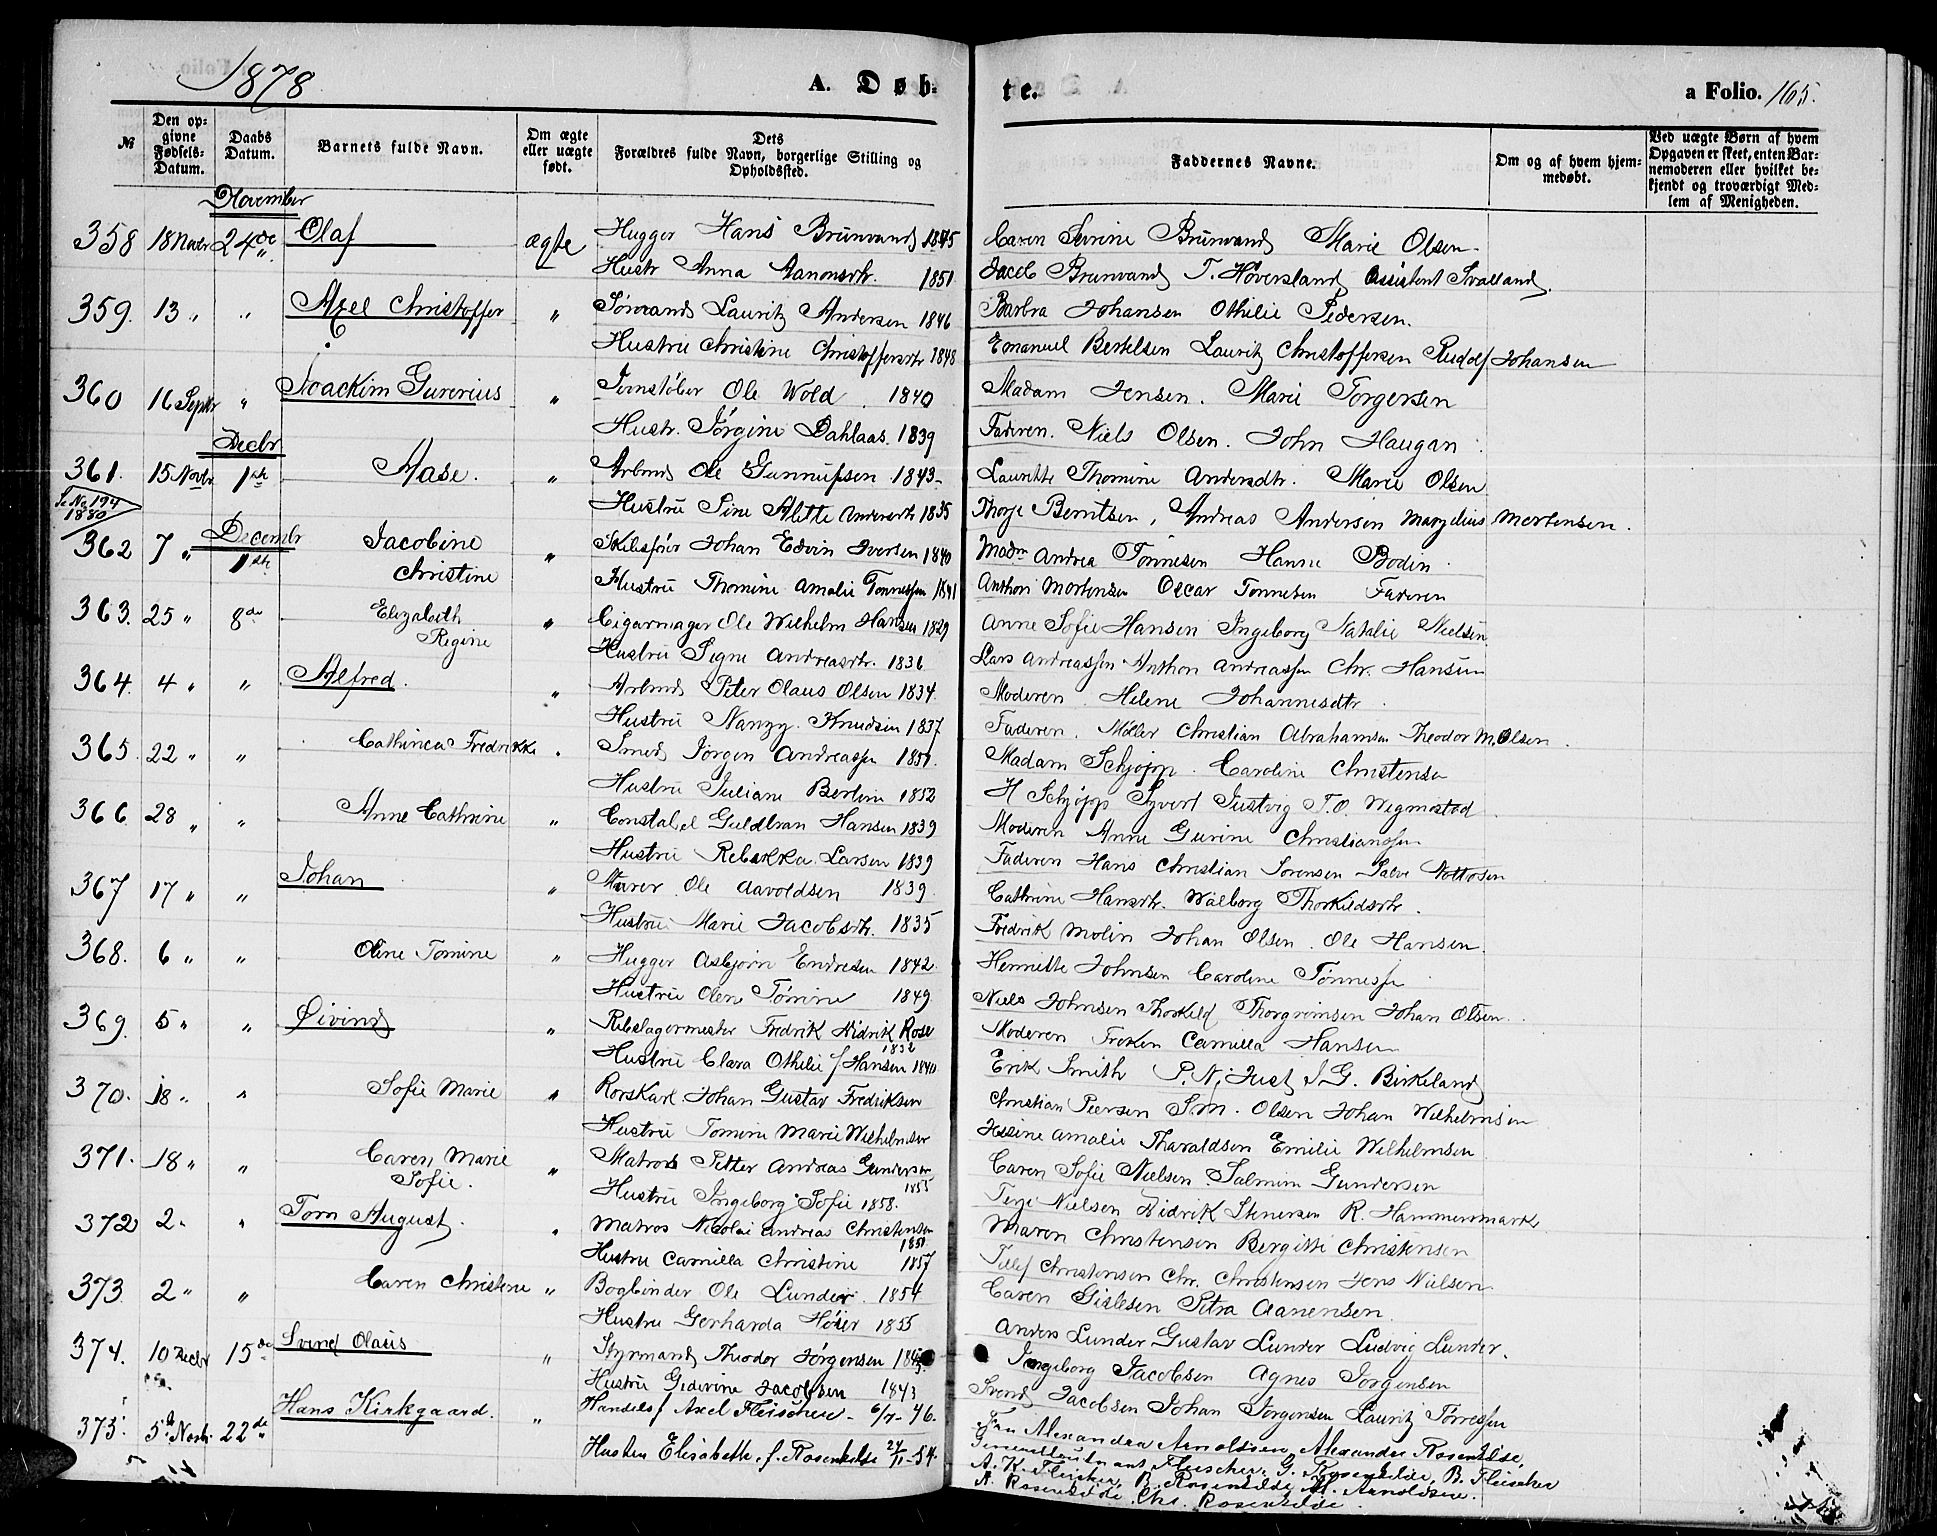 1878
A. Døb-
te.
a Folio. 165.
№
Den op-
givne
Fødsels-
Datum.
Daabs
Datum.
Barnets fulde Navn.
Om ægte
eller uægte
født.
Dets
Forældres fulde Navn, borgerlige Stilling og
Opholdssted.
Faddernes Navne.
Om og af hvem hjem-
medøbt.
Ved uægte Børn af hvem
Opgaven er skeet, enten Bar-
nemoderen eller hvilket be-
kjendt og troværdigt Med-
lem af Menigheden.
November
358 18 Novbr 24de Olaf ægte Hugger Hans Brunvand 1845 Caren Serine Brunvand Marie Olsen
Hustr Anna Aanonsdtr. 1851 Jacob Brunvand T. Hoversland Assistent Svaland.
359. 13 " " Axel Christoffer " Sømand Lauritz Andersen 1846 Barbra Johansen Othilie Pedersen.
Hustru Christine Christoffersdtr 1848 Emanuel Bertelsen Lauritz Christoffersen Rudolf Johansen
360 16 Septbr " Joackim Gurerius " Jernstøber Ole Wold 1840 Madam Jensen. Marie Torgersen
Hustr. Jørgine Dahlaas. 1839 Faderen. Niels Olsen. John Haugan
Decbr
361. 15 Novbr 1ste Aase. " Arbmd Ole Gunnufsen 1843 Laurette Thomine Andersdtr. Marie Olsen
Se No 194
1880
Hustru Sine Alette Andersdtr 1835 Thorje Berntsen, Andreas Andersen Marzelius Mortensen.
Decembr
362 7 " 1ste Jacobine " Skibsfører Johan Edvin Iversen 1840 Madm Andrea Tønnesen Hanne Bodin
Christine Hustru Thomine Amalie Tønnessen 1841 Anthon Mortensen Oscar Tonnesen Faderen
363. 25 " 8de Elizabeth " Cigarmager Ole Wilhelm Hansen 1829 Anne Sofie Hansen Ingeborg Natalie Nielsen
Regine Hustru Signe Andreasdtr. 1836 Lars Andreassen Anthon Andreassen Chr. Hansen
364. 4 " " Alfred. " Arbmd Peter Olaus Olsen 1834. Moderen Helene Johannesdtr
Hustru Nanzy Knudsen 1837 Faderen. Møller Christian Abrahamsen Theodor M. Olsen.
365. 22 " " Cathinca Fredrikke " Smed Jørgen Andreassen 1851. Madam Schjøpp. Caroline Christensen
Hustru Juliane Bertine 1852 H Schjøpp Syvert Justvig T. O. Wigmostad
366. 28 " " Anne Cathrine " Constabel Guldbran Hansen 1839 Moderen Anne Gurine Christianssen
Hustru Rebekka Larsen 1839 Faderen Hans Christian Sorensen Salve
367 17 " " Johan " Murer Ole Aavoldsen 1839. Cathrine Hansdtr. Walborg Thorkildsdtr.
Hustru Marie Jacobsdtr. 1835 Fredrik Molin Johan Olsen. Ole Hansen.
368. 6 " " Oline Tomine " Hugger Asbjørn Endresen 1842. Henriette Johnsen Caroline Tønnessen
Hustru Olene Tomine 1849. Niels Johnsen Thorkild Thorgrimsen Johan Olsen.
369. 5 " " Øivind " Rebslagermester Fredrik Didrik Rose Moderen Frøken Camilla Hansen
1832
Hustru Clara Othilie f Hansen 1840 Erik Smith P. N. Just I. G. Birkeland
370. 18 " " Sofie Marie " Rorskarl Johan Gustav Fredriksen Christian Peersen S. M. Olsen Johan Wilhelmsen
Hustru Tomine Marie Wilhelmsen Amalie Tharaldsen Emilie Wilhelmsen
371. 18 " " Caren Marie " Matros Petter Andreas Gundersen Caren Sofie Nielsen Salmine Gundersen
Sofie. 1855
Hustru Ingeborg Sofie 1858. Terje Nielsen Didrik Stenersen R. Hammermark
372 2 " " Torn August. " Matros Nicolai Andreas Christensen Maren Christensen Bergitte Christensen
1851
Hustru Camilla Christine 1857 Tellef Christensen Chr. Christensen Jens Nielsen
373. 2 " " Caren Christine " Bogbinder Ole Lunder. 1854 Caren Gislesen Petra Aanensen.
Hustru Gerharda Høier 1855 Anders Lunder Gustav Lunder Ludvig Lunder.
374. 10 Decbr 15de Svend Olaus " Styrmand Theodor Jørgensen Ingeborg Jacobsen Agnes Jorgensen
Hustru Gedevine Jacobsen 1843 Svend Jacobsen Johan Jorgensen Lauritz Tørressen
375. 5te Novbr. 22de Hans Kirkgaard. " Handelsf Axel Fleischer - 6/7 - 46. Fru Alexandra Arnoldsen, Alexander Rosenkilde,
Hustru Elisabeth f. Rosenkilde 24/1 - 54. Generalleutnant Fleischer, G. Rosenkilde, B. Fleischer
A. K. Fleischer, B. Rosenkilde, M. Arnoldsen.
A. Rosenkilde. Chr. Rosenkilde.